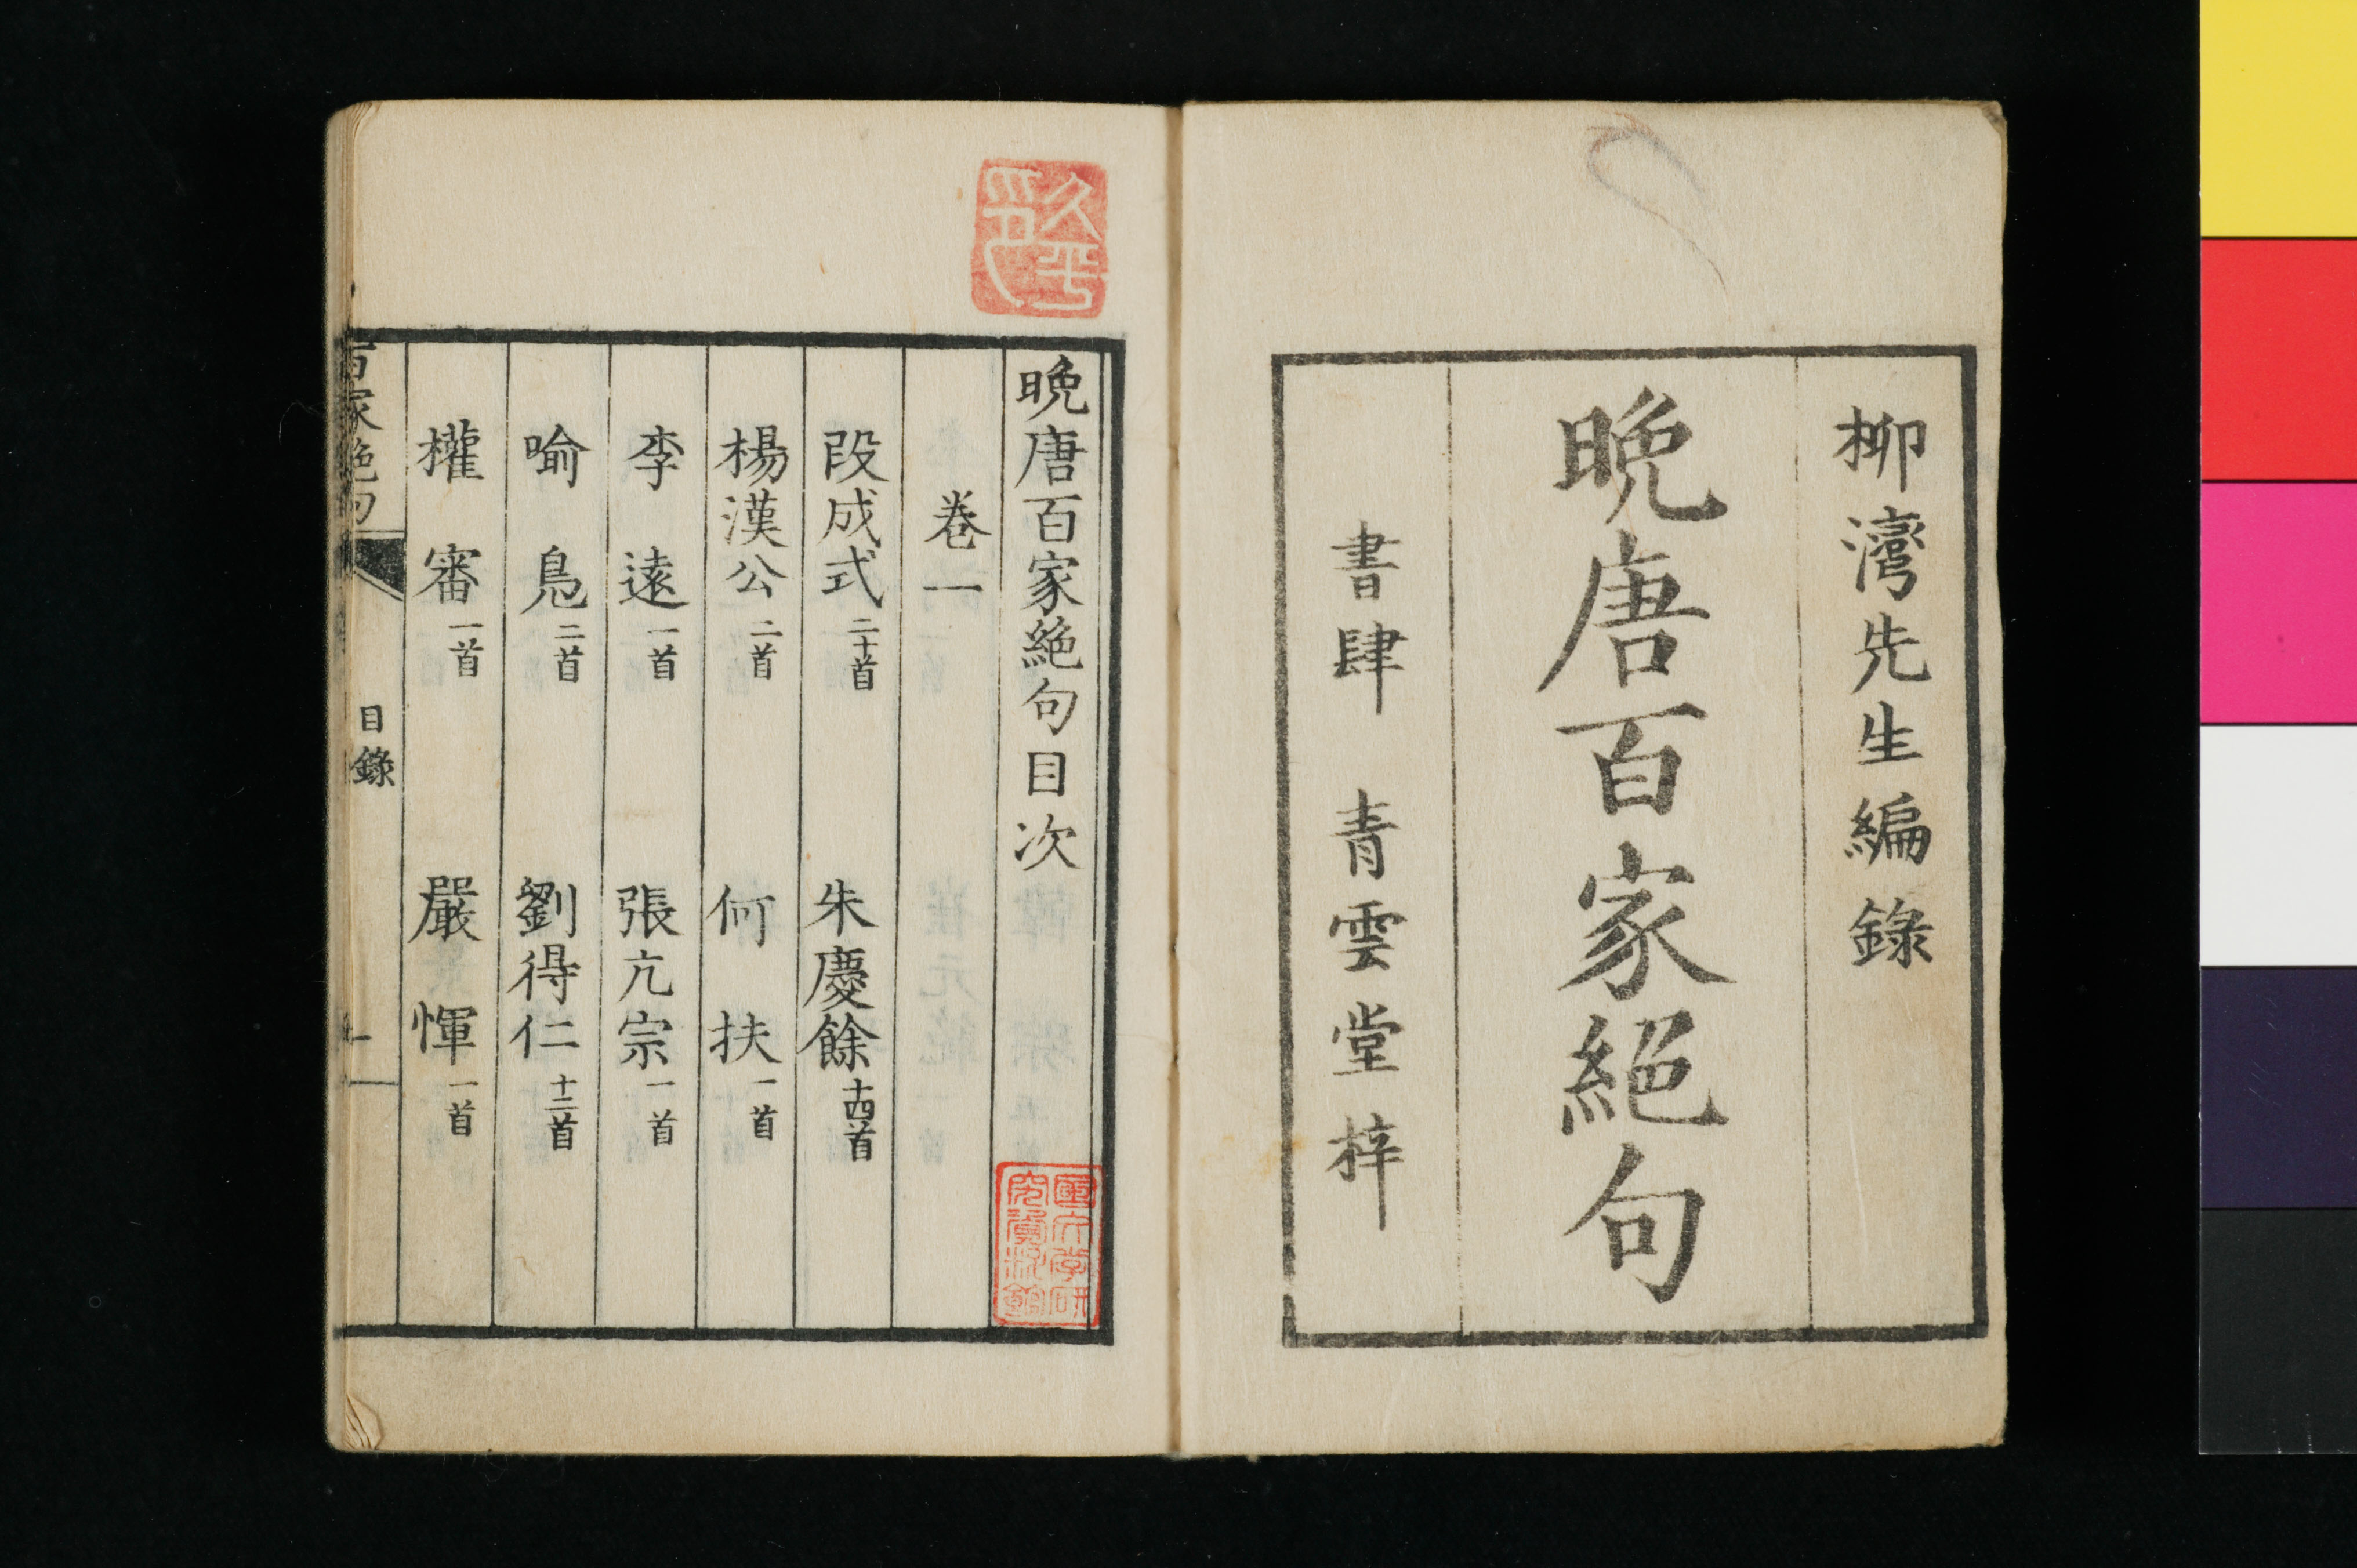 柳灣先生編錄
晩唐百家絕句
書肆 青雲堂梓
晩唐百家絕句目次
卷一
段成式二十首 朱慶餘十四首
楊漢公二首 何扶一首
李遠一首 張亢宗一首
喻鳧二首 劉得仁十二首
權審一首 嚴惲一首
百家絕句 目錄 一
久平印
國文學研究資料館